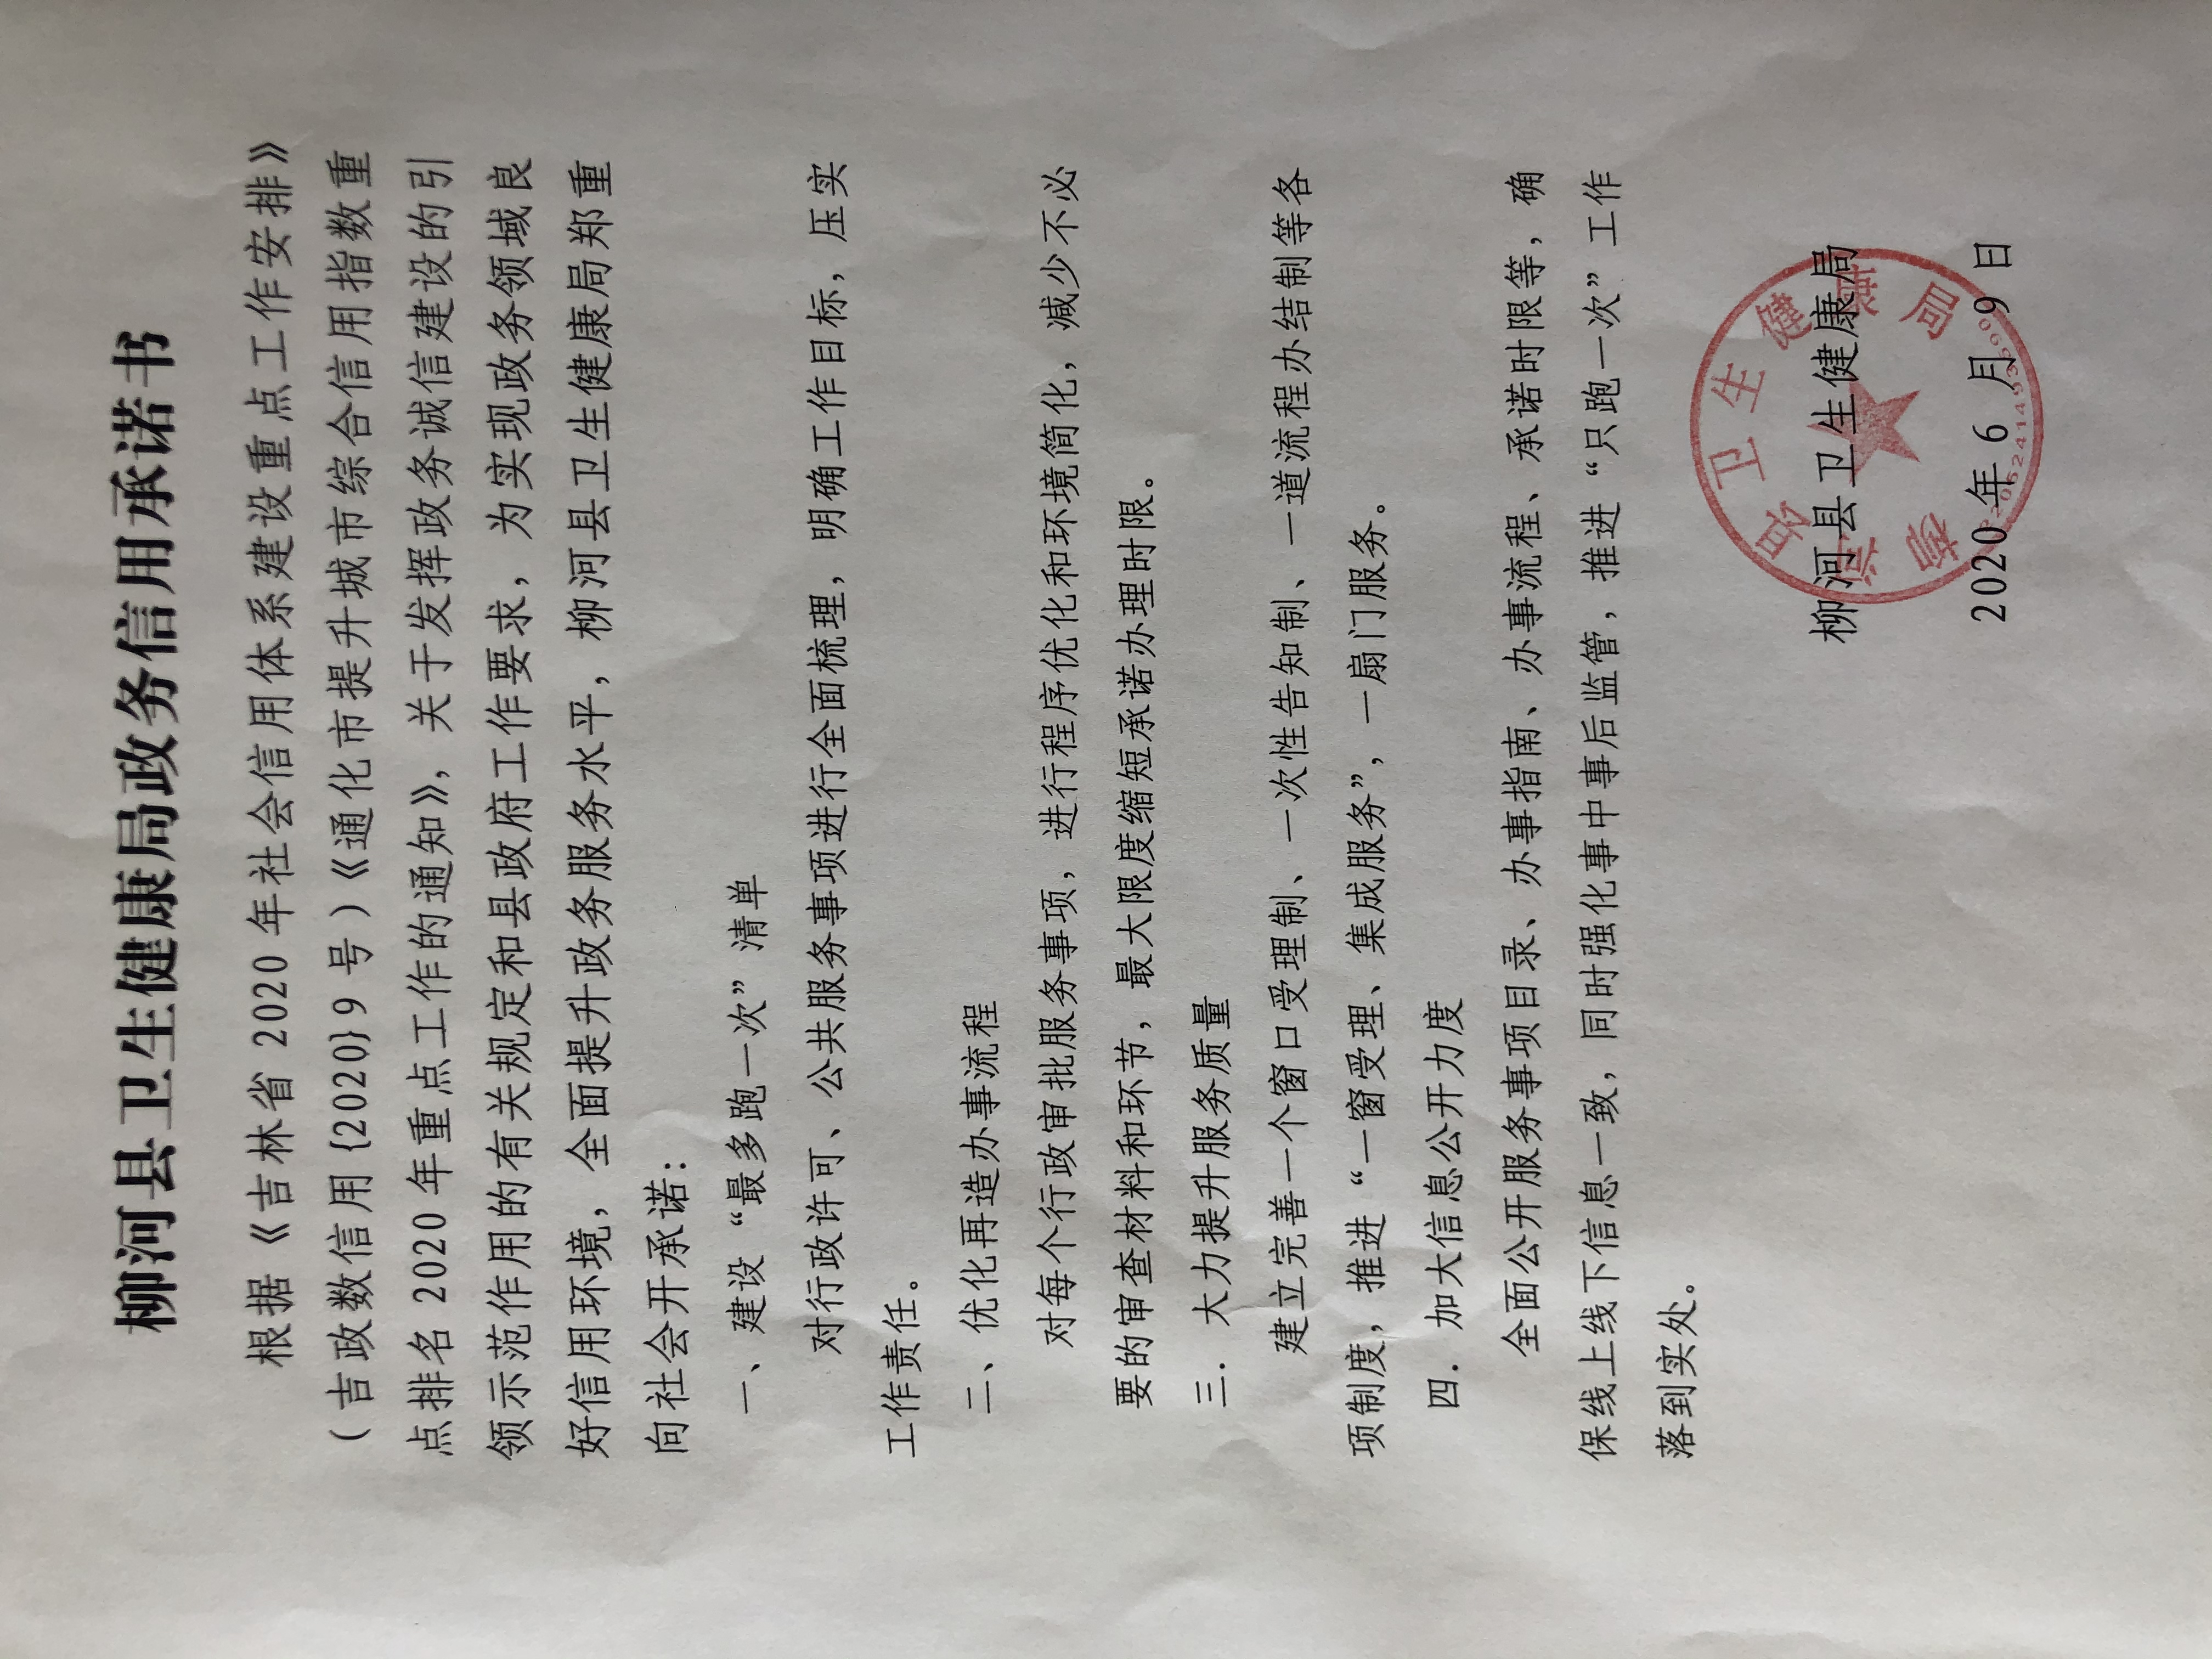 柳河县卫生健康局政务信用承诺书
根据《吉林省 2020 年社会信用体系建设重点工作安排》
（吉政数信用{2020}9 号）《通化市提升城市综合信用指数重
点排名 2020 年重点工作的通知》，关于发挥政务诚信建设的引
领示范作用的有关规定和县政府工作要求，为实现政务领域良
好信用环境，全面提升政务服务水平，柳河县卫生健康局郑重
向社会开承诺：
一、建设“最多跑一次”清单
对行政许可、公共服务事项进行全面梳理，明确工作目标，压实
工作责任。
二、优化再造办事流程
对每个行政审批服务事项，进行程序优化和环境简化，减少不必
要的审查材料和环节，最大限度缩短承诺办理时限。
三．大力提升服务质量
建立完善一个窗口受理制、一次性告知制、一道流程办结制等各
项制度，推进“一窗受理、集成服务”，一扇门服务。
四．加大信息公开力度
全面公开服务事项目录、办事指南、办事流程、承诺时限等，确
保线上线下信息一致，同时强化事中事后监管，推进“只跑一次”工作
落到实处。
柳河县卫生健康局
2020 年 6 月 9 日
柳河县卫生健康局